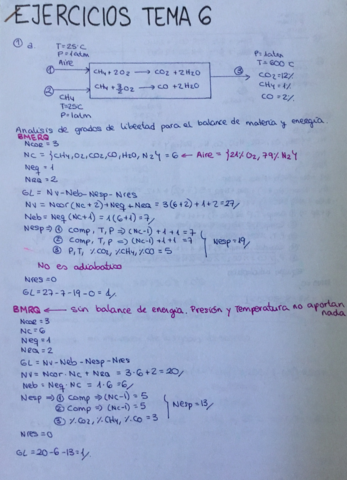 EJERCICIOS TEMA 6
① a.
T=25°C
P=1atm
Aire
①
CH4 + 2O2 → CO2 + 2H2O
CH4 + 3/2 O2 → CO + 2H2O
②
CH4
T=25°C
P=1atm
③
P=1atm
T=600°C
CO2=12%
CH4=1%
CO=2%
Analisis de grados de libertad para el balance de materia y energia.
BMERQ
Ncor=3
NC = {CH4, O2, CO2, CO, H2O, N2} = 6 ← Aire = {21% O2, 79% N2}
Neq=1
NRQ=2
GL = Nv-Neb-Nesp-Nres
Nv = Ncor(Nc+2)+Neq+NRQ = 3(6+2)+1+2=27
Neb = Neq(NC+1)=1(6+1)=7
Nesp ⇒ ① comp, T, P ⇒ (NC-1)+1+1=7
② comp, T, P ⇒ (NC-1)+1+1=7
③ P, T, %CO2, %CH4, %CO = 5
Nesp=19
No es adiabatico
Nres=0
GL=27-7-19-0=1
BMRQ ← sin balance de energia. Presión y Temperatura no aportan nada
Ncor=3
NC=6
Neq=1
NRQ=2
GL = Nv-Neb-Nesp-Nres
Nv = Ncor·NC + NRQ = 3·6+2=20
Neb = Neq·NC = 1·6=6
Nesp ⇒ ① comp ⇒ (NC-1) = 5
② comp ⇒ (NC-1) = 5
③ %CO2, %CH4, %CO = 3
Nesp=13
Nres=0
GL=20-6-13=1